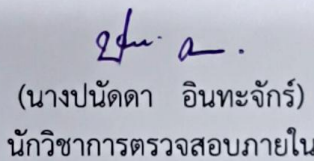 (นางปนัดดา อินทะจักร์)
นักวิชาการตรวจสอบภายใน